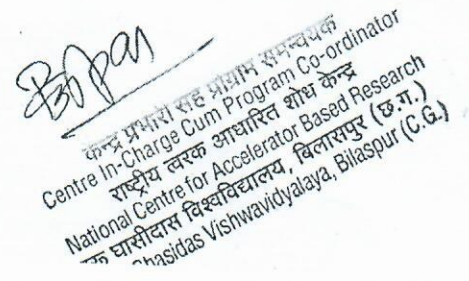 केन्द्र प्रभारी सह प्रोग्राम समन्वयक
Centre In-Charge Cum Program Co-ordinator
राष्ट्रीय त्वरक आधारित शोध केन्द्र
National Centre for Accelerator Based Research
घासीदास विश्वविद्यालय, बिलासपुर (छ.ग.)
Ghasidas Vishwavidyalaya, Bilaspur (C.G.)